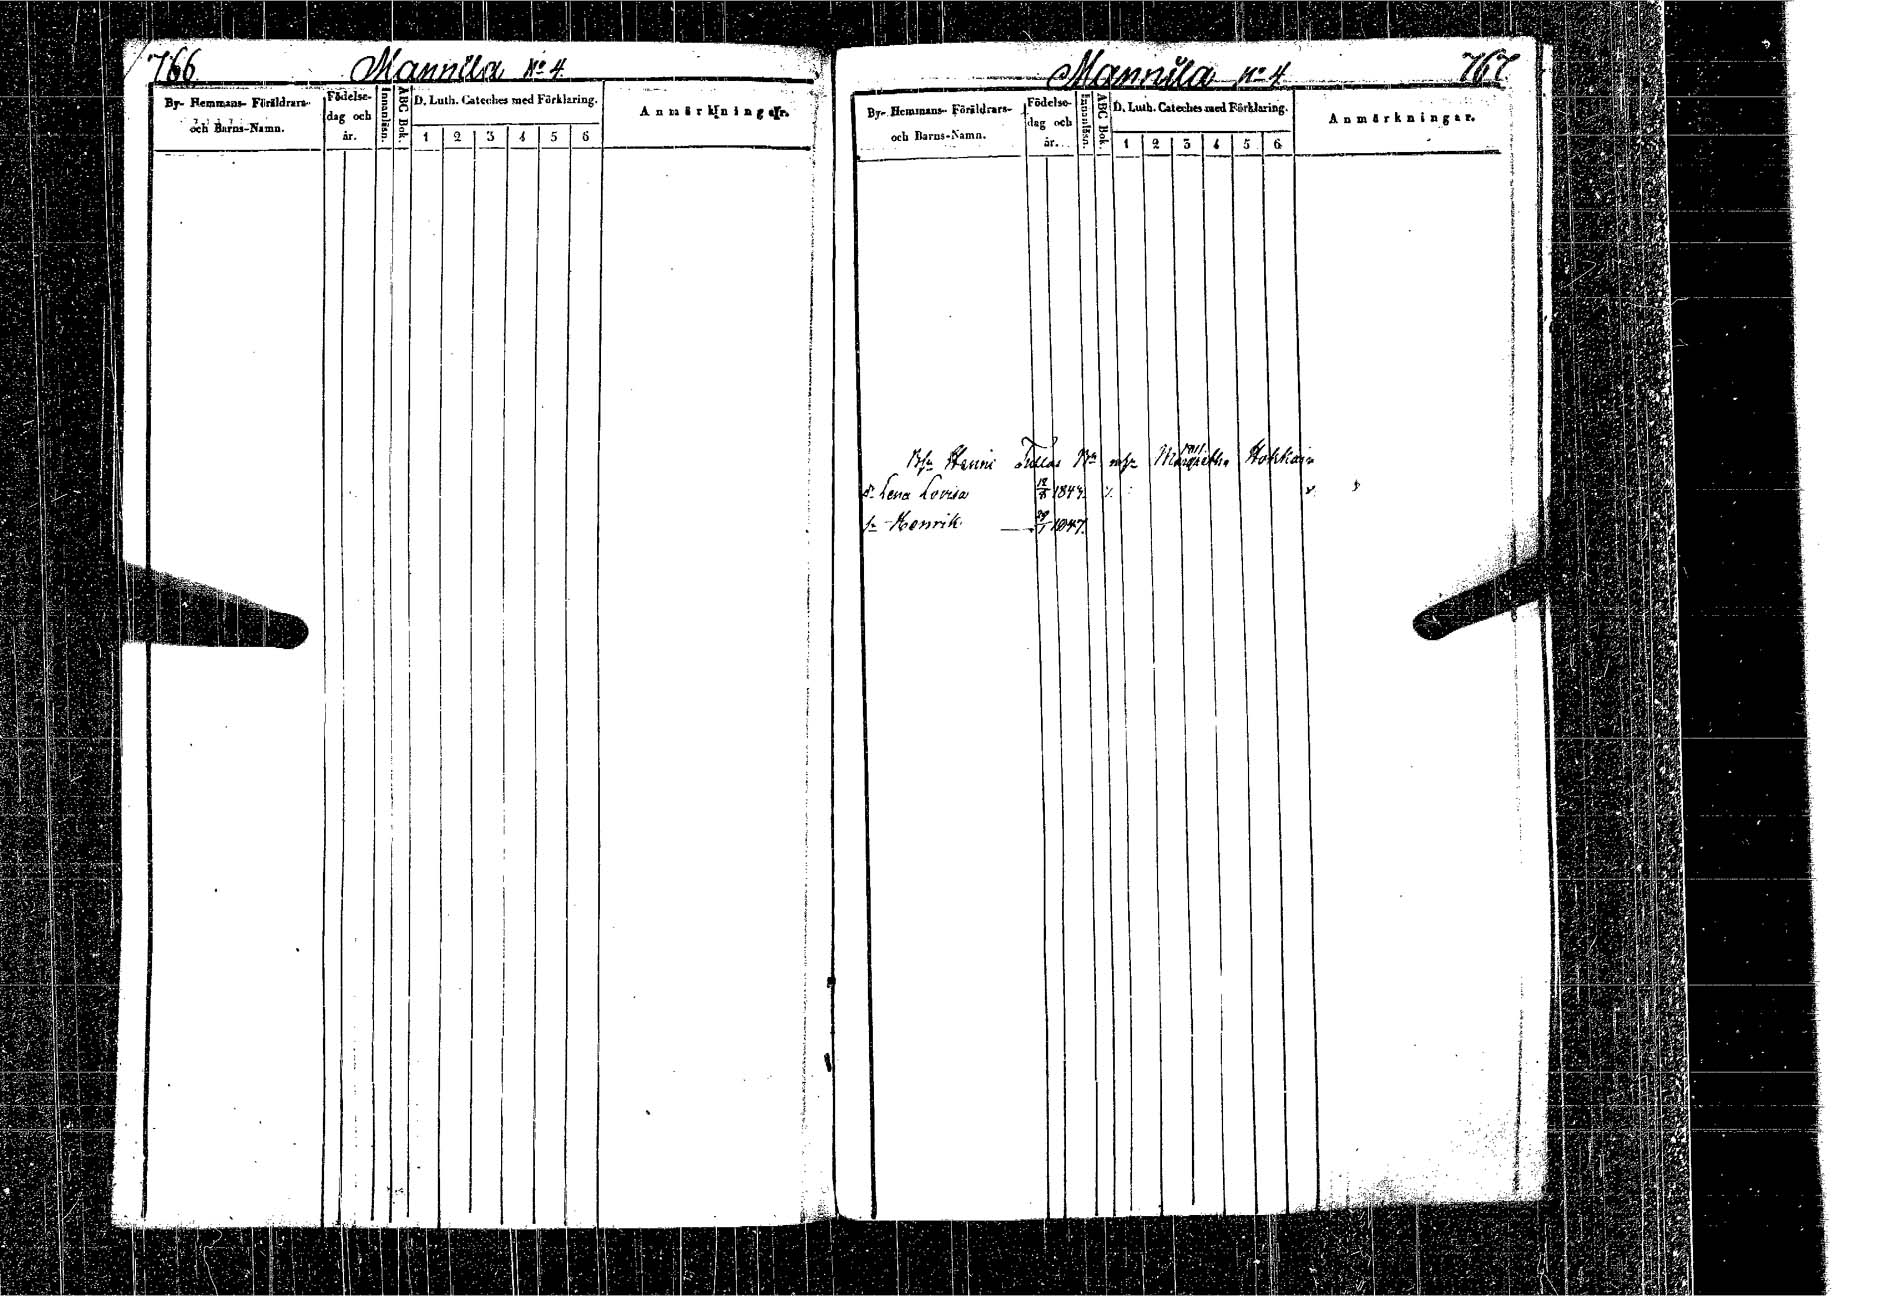 766 Mannila No 4
By- Hemmans- Föräldrars-
och Barns-Namn.
Födelse-
dag och
år.
Innanläsn.
ABC Bok.
D. Luth. Cateches med Förklaring.
1 2 3 4 5 6
Anmärkningar.
Mannila No 4 767
By- Hemmans- Föräldrars-
och Barns-Namn.
Födelse-
dag och
år.
Innanläsn.
ABC Bok.
D. Luth. Cateches med Förklaring.
1 2 3 4 5 6
Anmärkningar.
Henric Margretha
dr Lena Lovisa
sn Henrik 1847.